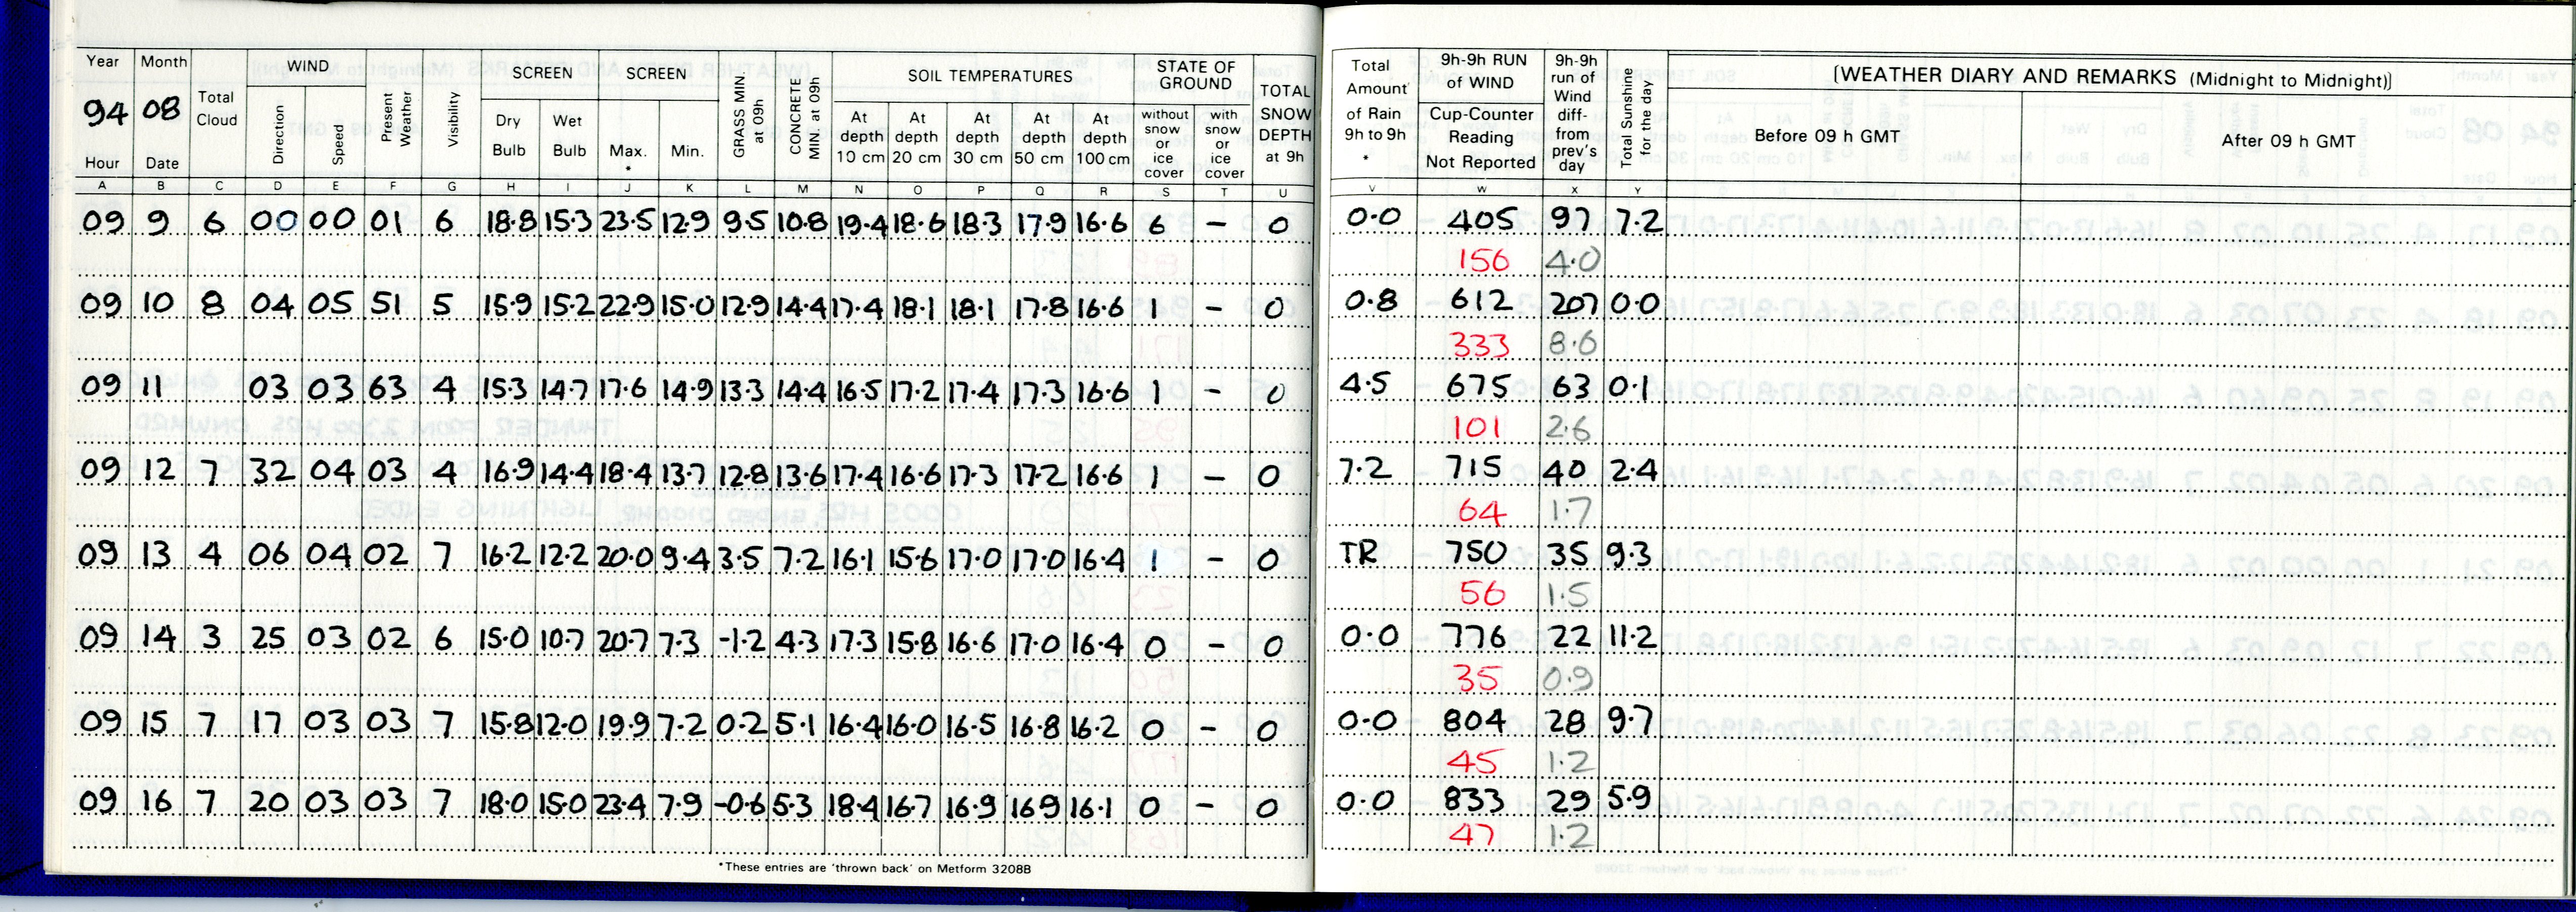 Year Month Total Cloud WIND Present Weather Visibility SCREEN SCREEN GRASS MIN at 09h CONCRETE MIN at 09h SOIL TEMPERATURES STATE OF GROUND TOTAL SNOW DEPTH at 9h Total Amount of Rain 9h to 9h * 9h-9h RUN of WIND 9h-9h run of Wind diff- from prev's day Total Sunshine for the day [WEATHER DIARY AND REMARKS (Midnight to Midnight)]
94 08
Hour Date Direction Speed Dry Bulb Wet Bulb Max. * Min. At depth 10 cm At depth 20 cm At depth 30 cm At depth 50 cm At depth 100 cm without snow or ice cover with snow or ice cover Cup-Counter Reading Not Reported Before 09 h GMT After 09 h GMT
A B C D E F G H I J K L M N O P Q R S T U V W X Y
09 9 6 00 00 01 6 18.8 15.3 23.5 12.9 9.5 10.8 19.4 18.6 18.3 17.9 16.6 6 – 0 0.0 405 97 7.2
156 4.0
09 10 8 04 05 51 5 15.9 15.2 22.9 15.0 12.9 14.4 17.4 18.1 18.1 17.8 16.6 1 – 0 0.8 612 207 0.0
333 8.6
09 11 03 03 63 4 15.3 14.7 17.6 14.9 13.3 14.4 16.5 17.2 17.4 17.3 16.6 1 – 0 4.5 675 63 0.1
101 2.6
09 12 7 32 04 03 4 16.9 14.4 18.4 13.7 12.8 13.6 17.4 16.6 17.3 17.2 16.6 1 – 0 7.2 715 40 2.4
64 1.7
09 13 4 06 04 02 7 16.2 12.2 20.0 9.4 3.5 7.2 16.1 15.6 17.0 17.0 16.4 1 – 0 TR 750 35 9.3
56 1.5
09 14 3 25 03 02 6 15.0 10.7 20.7 7.3 -1.2 4.3 17.3 15.8 16.6 17.0 16.4 0 – 0 0.0 776 22 11.2
35 0.9
09 15 7 17 03 03 7 15.8 12.0 19.9 7.2 0.2 5.1 16.4 16.0 16.5 16.8 16.2 0 – 0 0.0 804 28 9.7
45 1.2
09 16 7 20 03 03 7 18.0 15.0 23.4 7.9 -0.6 5.3 18.4 16.7 16.9 16.9 16.1 0 – 0 0.0 833 29 5.9
47 1.2
*These entries are 'thrown back' on Metform 3208B